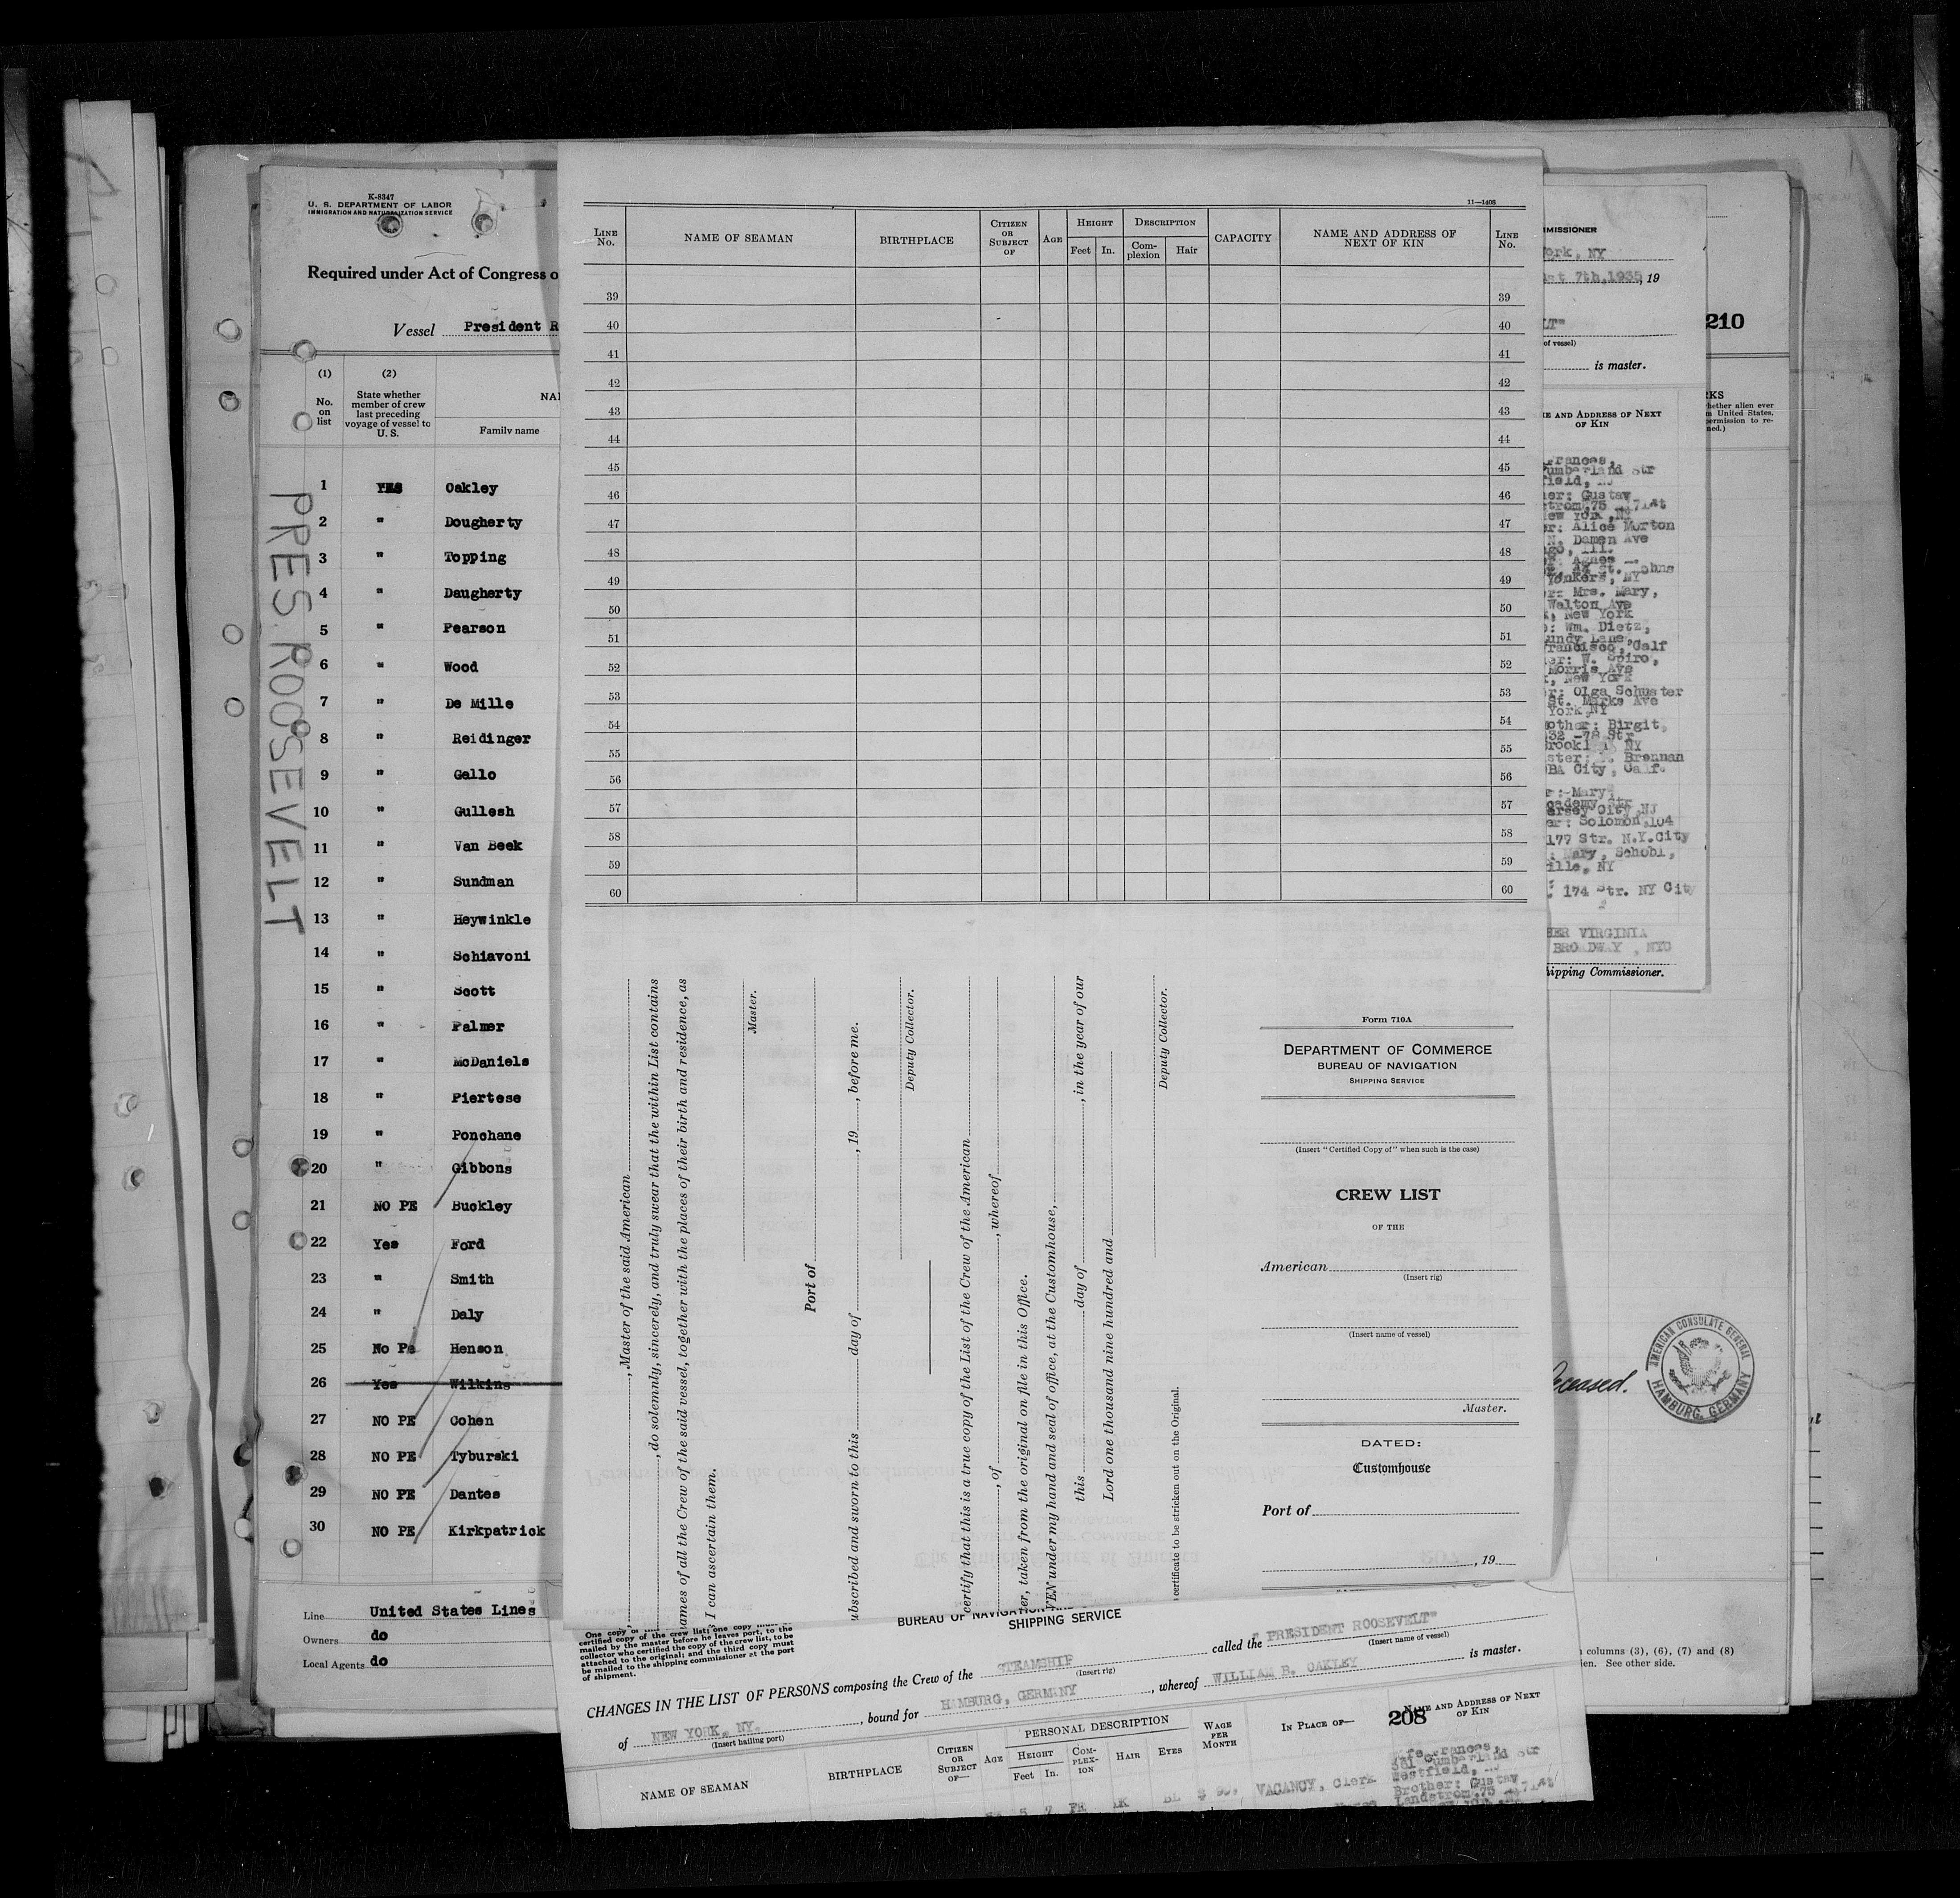 K-8347
U. S. DEPARTMENT OF LABOR
IMMIGRATION AND NATURALIZATION SERVICE
Required under Act of Congress o
Vessel President R
(1) (2)
No. on list
State whether member of crew last preceding voyage of vessel to U. S.
NA
Family name
1 YES Oakley
2 " Dougherty
3 " Topping
4 " Daugherty
5 " Pearson
6 " Wood
7 " De Mille
8 " Reidinger
9 " Gallo
10 " Gullesh
11 " Van Beek
12 " Sundman
13 " Heywinkle
14 " Schiavoni
15 " Scott
16 " Palmer
17 " McDaniels
18 " Piertese
19 " Ponchane
20 " Gibbons
21 NO PE Buckley
22 Yes Ford
23 " Smith
24 " Daly
25 No Pe Henson
26 Yes Wilkins
27 NO PE Cohen
28 NO PE Tyburski
29 NO PE Dantes
30 NO PE Kirkpatrick
Line United States Lines
Owners do
Local Agents do
PRES. ROOSEVELT
11—1408
LINE No.
NAME OF SEAMAN
BIRTHPLACE
CITIZEN OR SUBJECT OF
AGE
HEIGHT
Feet In.
DESCRIPTION
Complexion Hair
CAPACITY
NAME AND ADDRESS OF NEXT OF KIN
LINE No.
39 39
40 40
41 41
42 42
43 43
44 44
45 45
46 46
47 47
48 48
49 49
50 50
51 51
52 52
53 53
54 54
55 55
56 56
57 57
58 58
59 59
60 60
, Master of the said American
, do solemnly, sincerely, and truly swear that the within List contains
ames of all the Crew of the said vessel, together with the places of their birth and residence, as
I can ascertain them.
Master.
Port of
ubscribed and sworn to this day of , 19 , before me.
Deputy Collector.
certify that this is a true copy of the List of the Crew of the American
, of , whereof
er, taken from the original on file in this Office.
VEN under my hand and seal of office, at the Customhouse,
this day of , in the year of our
Lord one thousand nine hundred and
Deputy Collector.
certificate to be stricken out on the Original.
Form 710A
DEPARTMENT OF COMMERCE
BUREAU OF NAVIGATION
SHIPPING SERVICE
(Insert "Certified Copy of" when such is the case)
CREW LIST
OF THE
American
(Insert rig)
(Insert name of vessel)
Master.
DATED:
Customhouse
Port of
, 19
MMISSIONER
ork, NY
st 7th,1935, 19
LT"
of vessel)
is master.
210
RKS
hether alien ever
m United States,
ermission to re-
ned.)
E AND ADDRESS OF NEXT
OF KIN
Frances,
umberland Str
field, NJ
her: Gustav
strom, 75 71st
ew York ,NY
er: Alice Morton
N. Damen Ave
ago, Ill.
r: Agnes
St. Johns
Yonkers, NY
er: Mrs. Mary,
Walton Ave
, New York
: Wm. Dietz,
undy Lane,
Francisco, Calf
er: W. Spiro,
Morris Ave
, New York
er: Olga Schuster
St. Marks Ave
York,NY
other: Birgit,
32 -78 Str
Brooklyn NY
ster: Brennan
BA City, Calf.
r: Mary,
cademy Str
ersey City,NJ
er: Solomon,104
177 Str. N.Y.City
: Mary, Schobl,
ille, NY
174 Str. NY City
HER VIRGINIA
BROADWAY , NYC
hipping Commissioner.
eceased.
AMERICAN CONSULATE GENERAL
HAMBURG, GERMANY
columns (3), (6), (7) and (8)
en. See other side.
One copy of
certified copy of the crew list; one copy
mailed by the master before he leaves port, to the
collector who certified the copy of the crew list, to be
attached to the original; and the third copy must
be mailed to the shipping commissioner at the port
of shipment.
BUREAU OF NAVIGATION
SHIPPING SERVICE
CHANGES IN THE LIST OF PERSONS composing the Crew of the STEAMSHIP called the "PRESIDENT ROOSEVELT"
(Insert rig) (Insert name of vessel)
of NEW YORK, NY. , bound for HAMBURG, GERMANY , whereof WILLIAM B. OAKLEY is master.
(Insert hailing port)
208
NAME OF SEAMAN
BIRTHPLACE
CITIZEN OR SUBJECT OF—
AGE
PERSONAL DESCRIPTION
HEIGHT
Feet In.
COMPLEXION
HAIR
EYES
WAGE PER MONTH
IN PLACE OF—
NAME AND ADDRESS OF NEXT OF KIN
5 7 BL $ 90, VACANCY, Clerk
Wife Frances,
381 Cumberland Str
Westfield, NJ
Brother: Gustav
Landstrom,75 71st